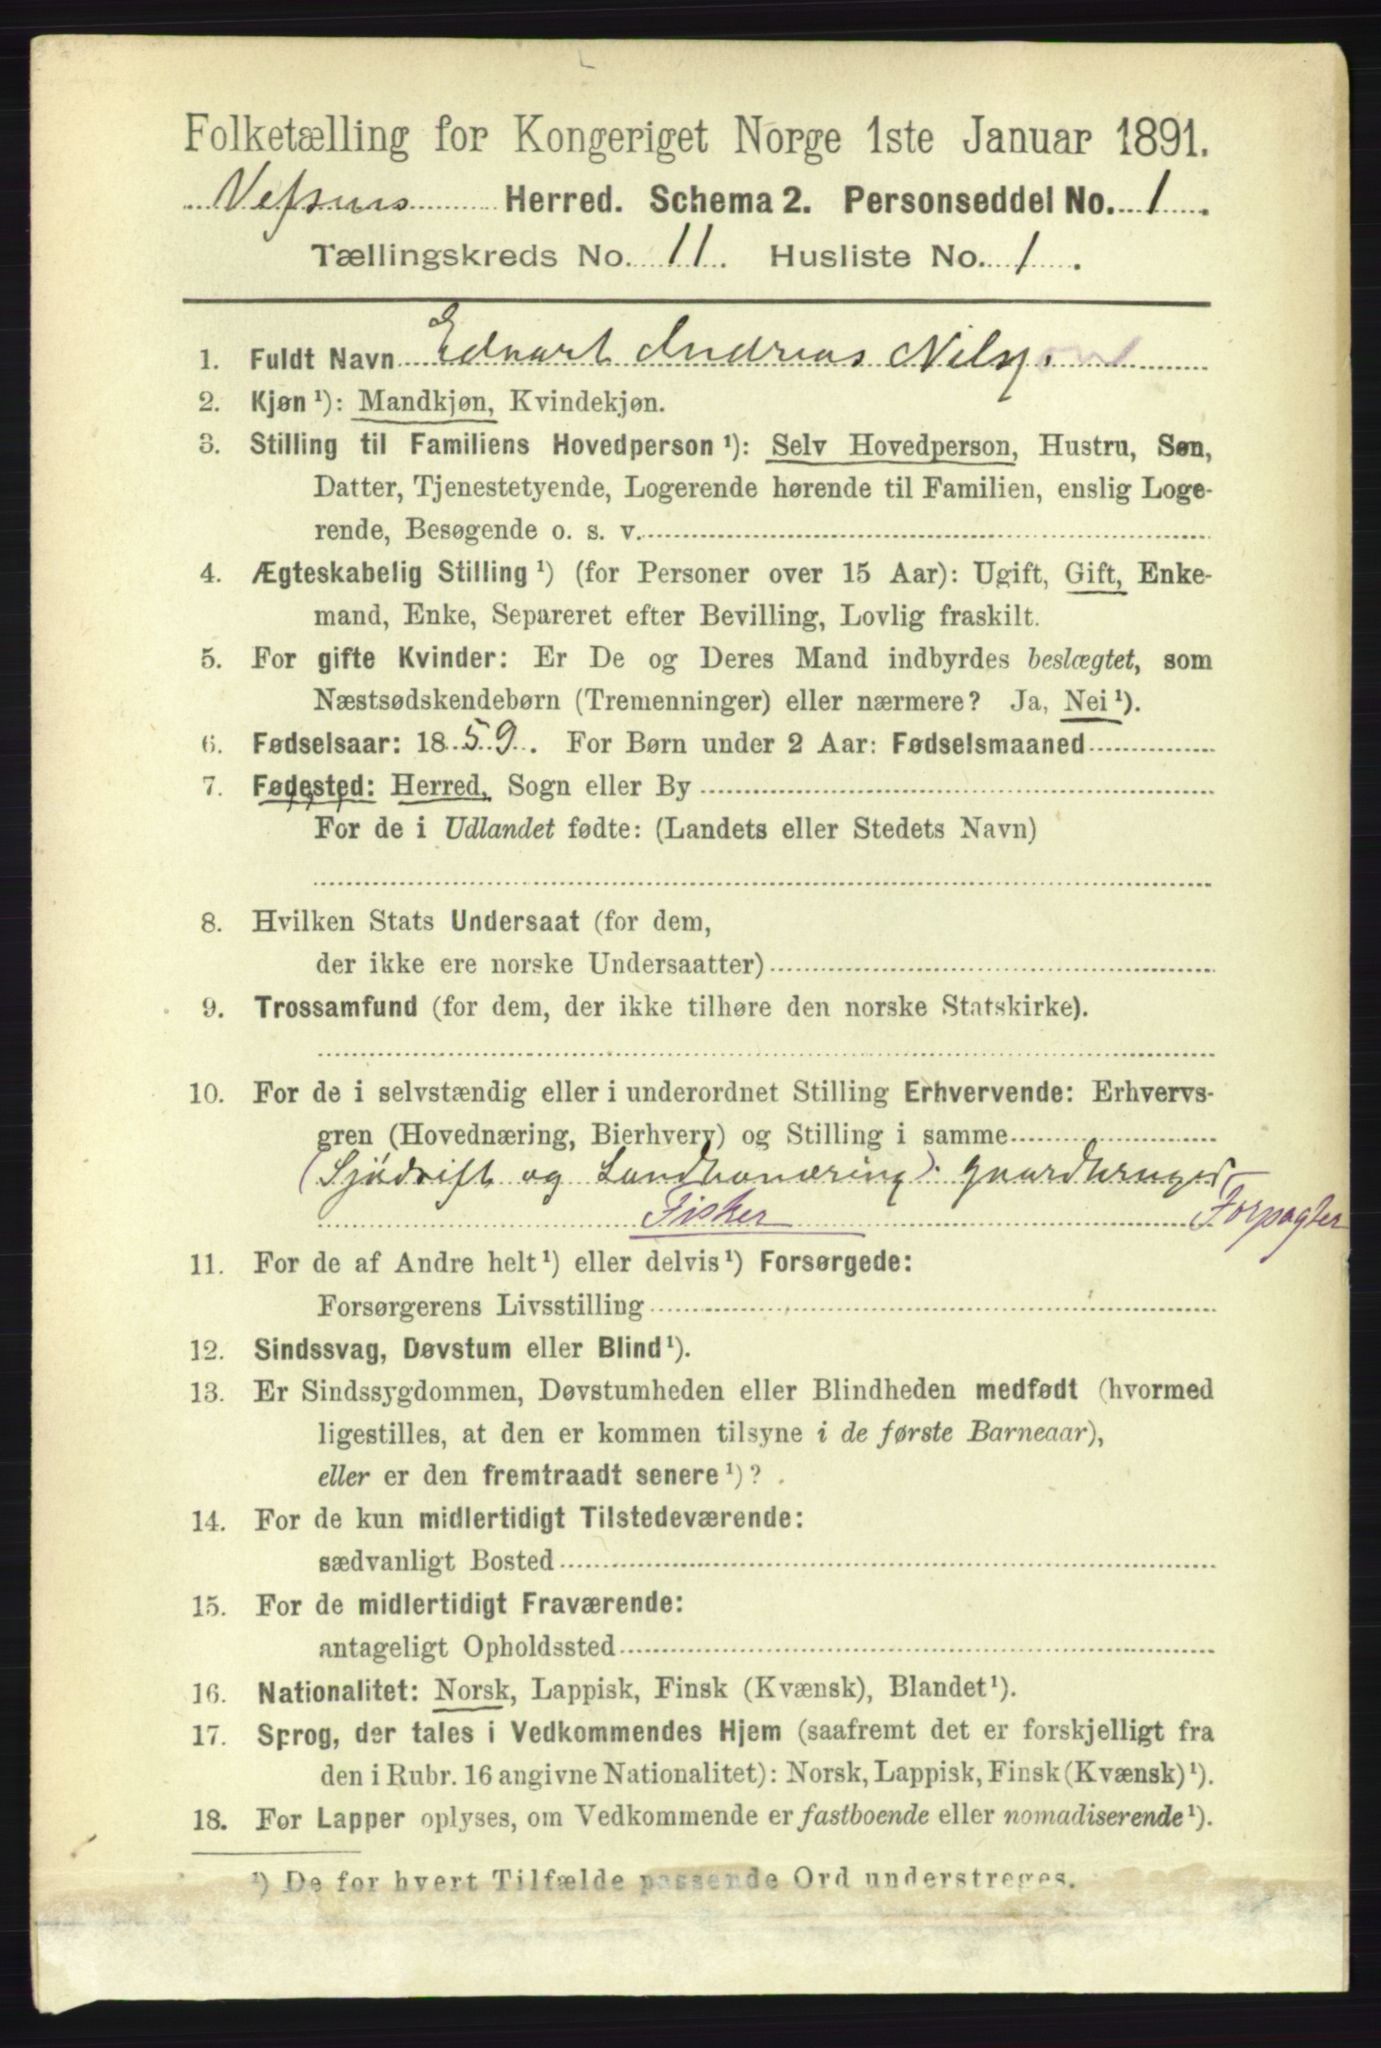 Folketælling for Kongeriget Norge 1ste Januar 1891.
Vefsens Herred. Schema 2. Personseddel No. 1.
Tællingskreds No. 11. Husliste No. 1.
1. Fuldt Navn Edvart Andreas Nils
2. Kjøn ¹): Mandkjøn, Kvindekjøn.
3. Stilling til Familiens Hovedperson ¹): Selv Hovedperson, Hustru, Søn,
Datter, Tjenestetyende, Logerende hørende til Familien, enslig Loge-
rende, Besøgende o. s. v.
4. Ægteskabelig Stilling ¹) (for Personer over 15 Aar): Ugift, Gift, Enke-
mand, Enke, Separeret efter Bevilling, Lovlig fraskilt.
5. For gifte Kvinder: Er De og Deres Mand indbyrdes beslægtet, som
Næstsødskendebørn (Tremenninger) eller nærmere? Ja, Nei ¹).
6. Fødselsaar: 1859. For Børn under 2 Aar: Fødselsmaaned
7. Fødested: Herred, Sogn eller By
For de i Udlandet fødte: (Landets eller Stedets Navn)
8. Hvilken Stats Undersaat (for dem,
der ikke ere norske Undersaatter)
9. Trossamfund (for dem, der ikke tilhøre den norske Statskirke).
10. For de i selvstændig eller i underordnet Stilling Erhvervende: Erhvervs-
gren (Hovednæring, Bierhverv) og Stilling i samme
(Sjødrift og Landhonæring). gaardbruger
Fisker Forpagter
11. For de af Andre helt ¹) eller delvis ¹) Forsørgede:
Forsørgerens Livsstilling
12. Sindssvag, Døvstum eller Blind ¹).
13. Er Sindssygdommen, Døvstumheden eller Blindheden medfødt (hvormed
ligestilles, at den er kommen tilsyne i de første Barneaar),
eller er den fremtraadt senere ¹)?
14. For de kun midlertidigt Tilstedeværende:
sædvanligt Bosted
15. For de midlertidigt Fraværende:
antageligt Opholdssted
16. Nationalitet: Norsk, Lappisk, Finsk (Kvænsk), Blandet ¹).
17. Sprog, der tales i Vedkommendes Hjem (saafremt det er forskjelligt fra
den i Rubr. 16 angivne Nationalitet): Norsk, Lappisk, Finsk (Kvænsk) ¹).
18. For Lapper oplyses, om Vedkommende er fastboende eller nomadiserende ¹).
¹) De for hvert Tilfælde passende Ord understreges.